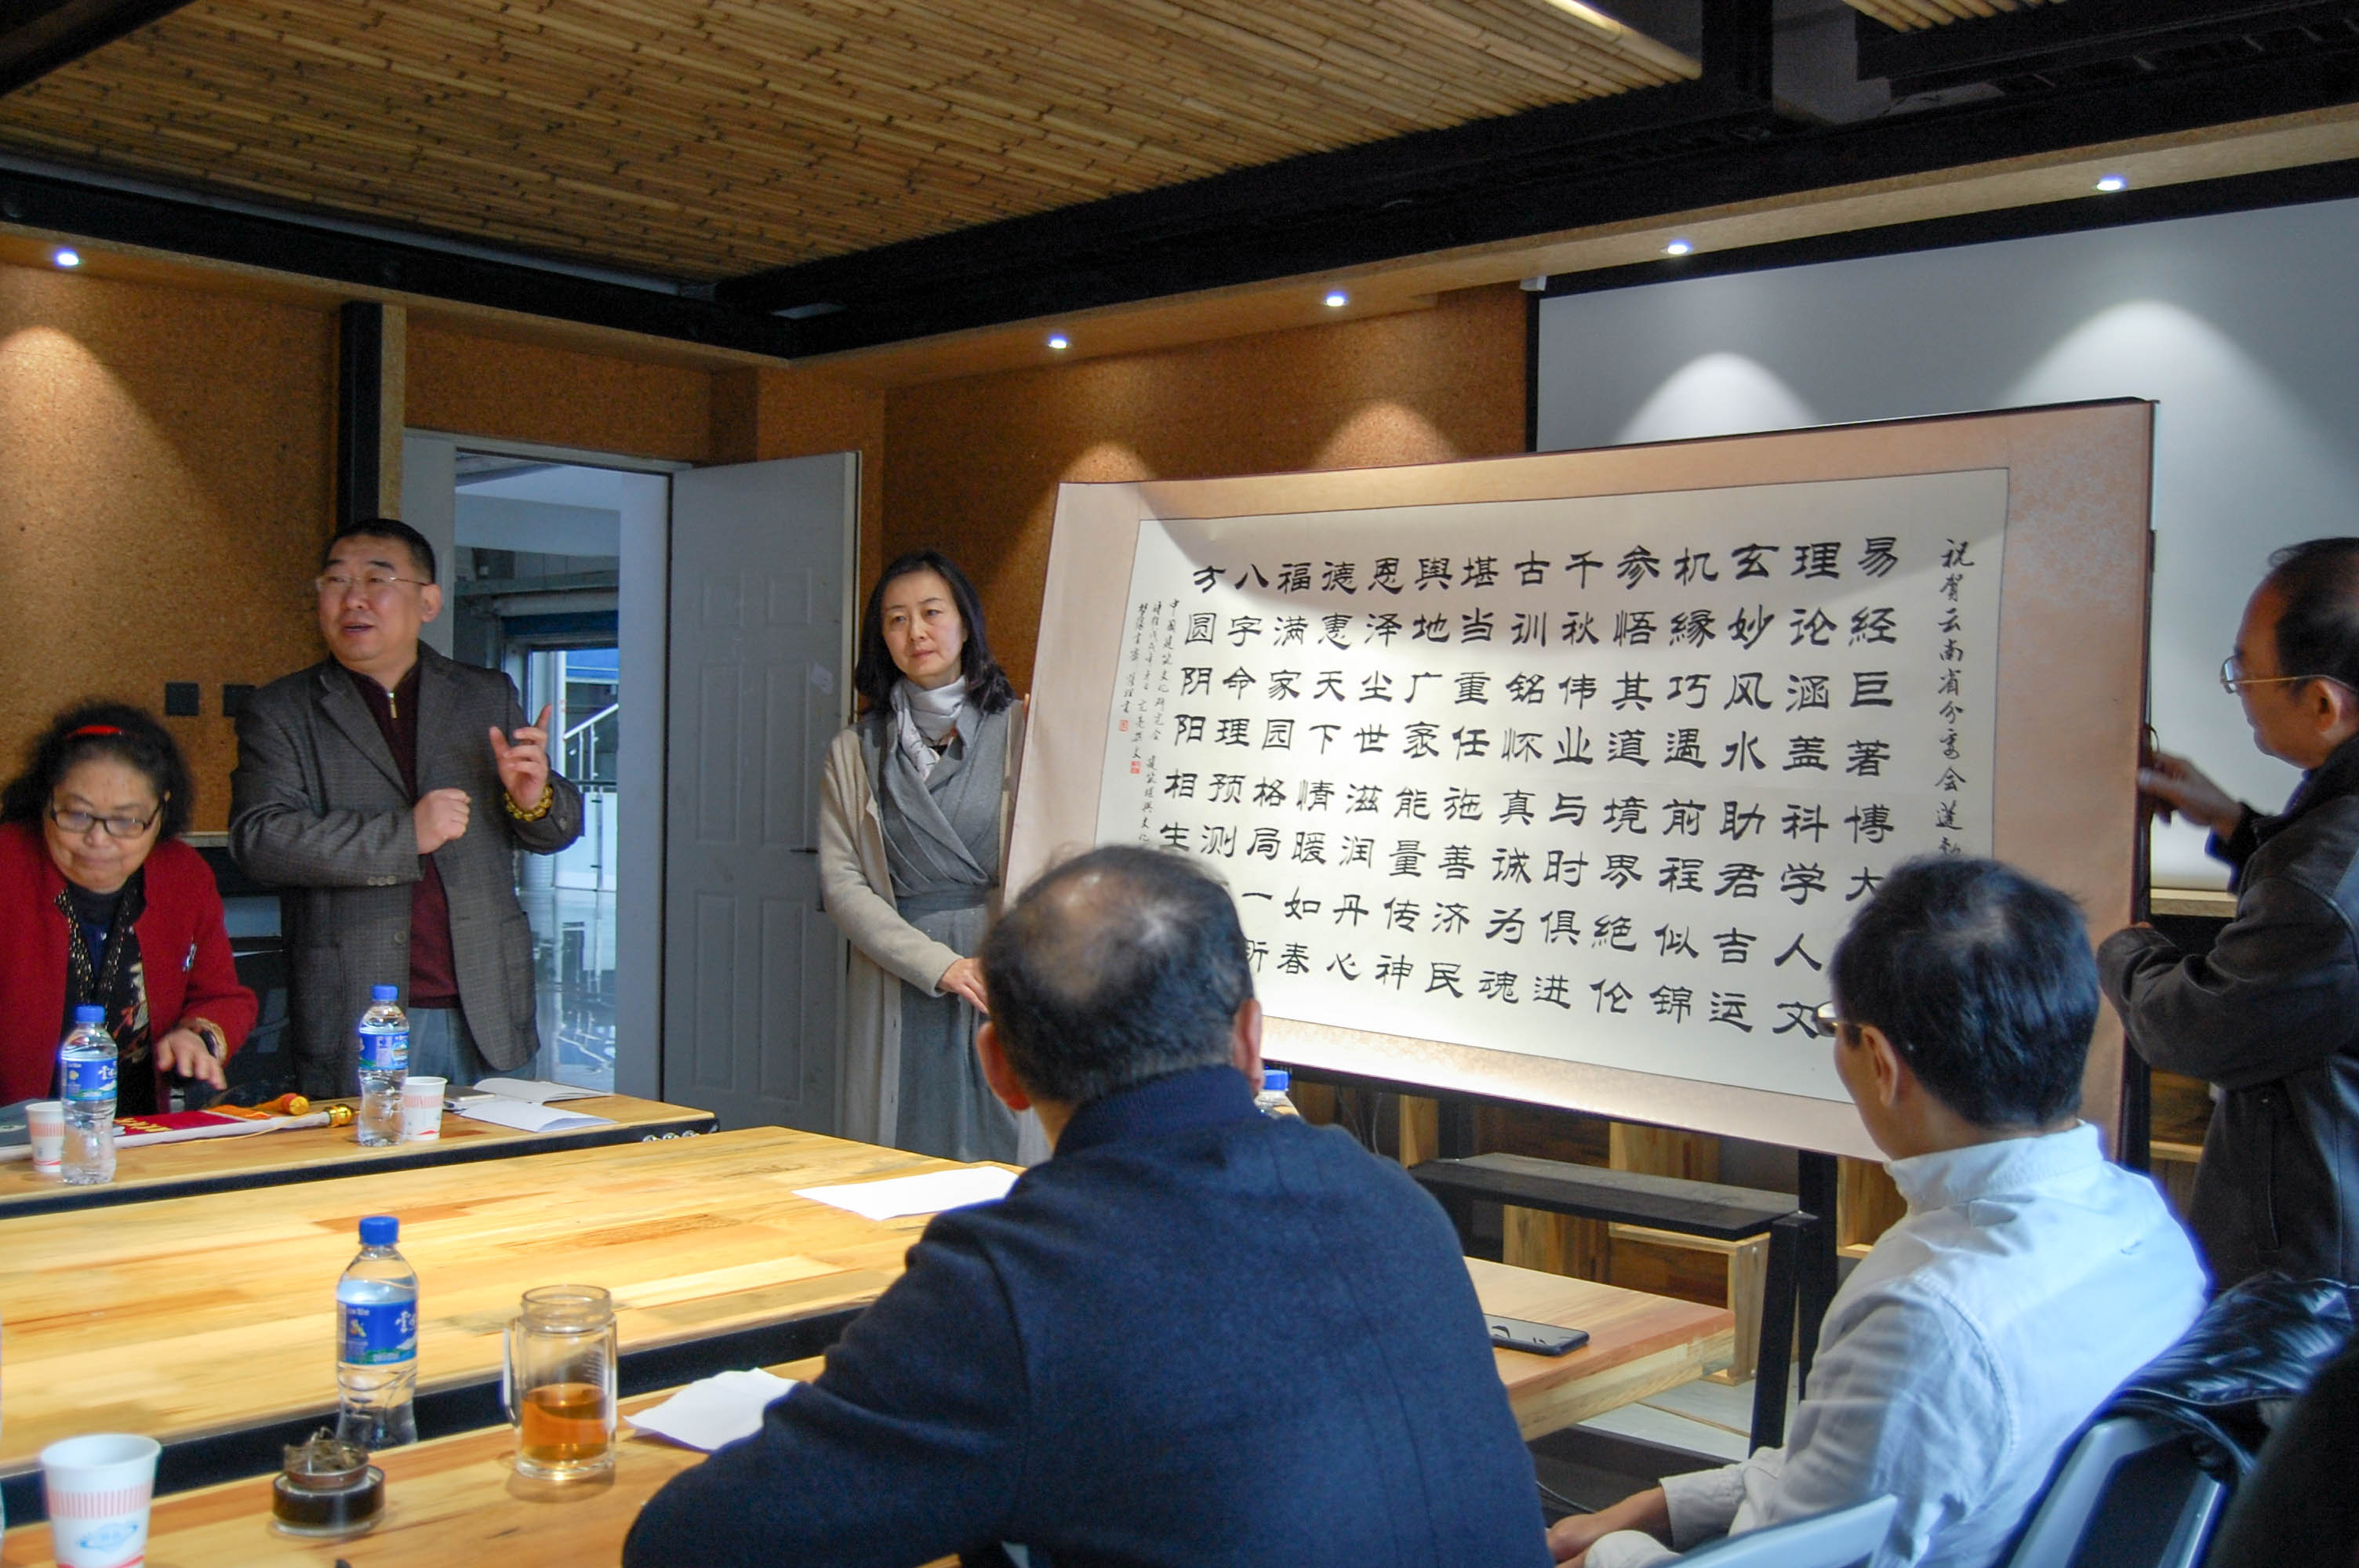 祝贺云南省分委会
易经巨著博大
理论涵盖科学人文
玄妙风水助君吉运
机緣巧遇前程似锦
参悟其道境界絶伦
千秋伟业与时俱进
古训铭怀真诚为魂
堪当重任施善济民
舆地广袤能量传神
恩泽尘世滋润丹心
德惠天下情暖如春
福满家园格局一新
八字命理预测
方圆阴阳相生
中国建筑文化研究会 建筑堪舆文化